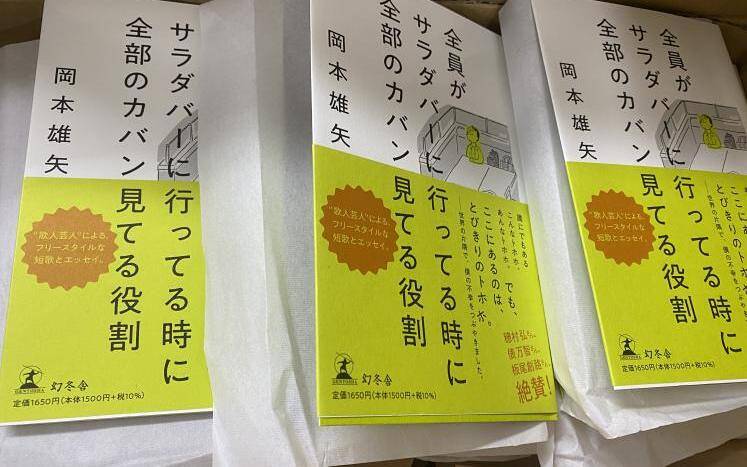 サラダバーに行ってる時に
全部のカバン見てる役割
岡本雄矢
“歌人芸人”による、
フリースタイルな
短歌とエッセイ。
幻冬舎
定価1650円(本体1500円+税10%)
全員が
サラダバーに行ってる時に
全部のカバン見てる役割
岡本雄矢
誰にでもある
こんなトホホ、
あんなトホホ。
でも、
ここにあるのは、
とびきりのトホホ。
世界の片隅で、僕の不幸をつぶやきました。
“歌人芸人”による、
フリースタイルな
短歌とエッセイ。
穂村弘さん、
俵万智さん、
板尾創路さん、
絶賛!
幻冬舎
定価1650円(本体1500円+税10%)
全員が
サラダバーに行ってる時に
全部のカバン見てる役割
岡本雄矢
ここにあるのは、
とびきりのトホホ。
世界の片隅で、僕の不幸をつぶやき
“歌人芸人”による、
フリースタイルな
短歌とエッセイ。
幻冬舎
定価1650円(本体1500円+税10%)